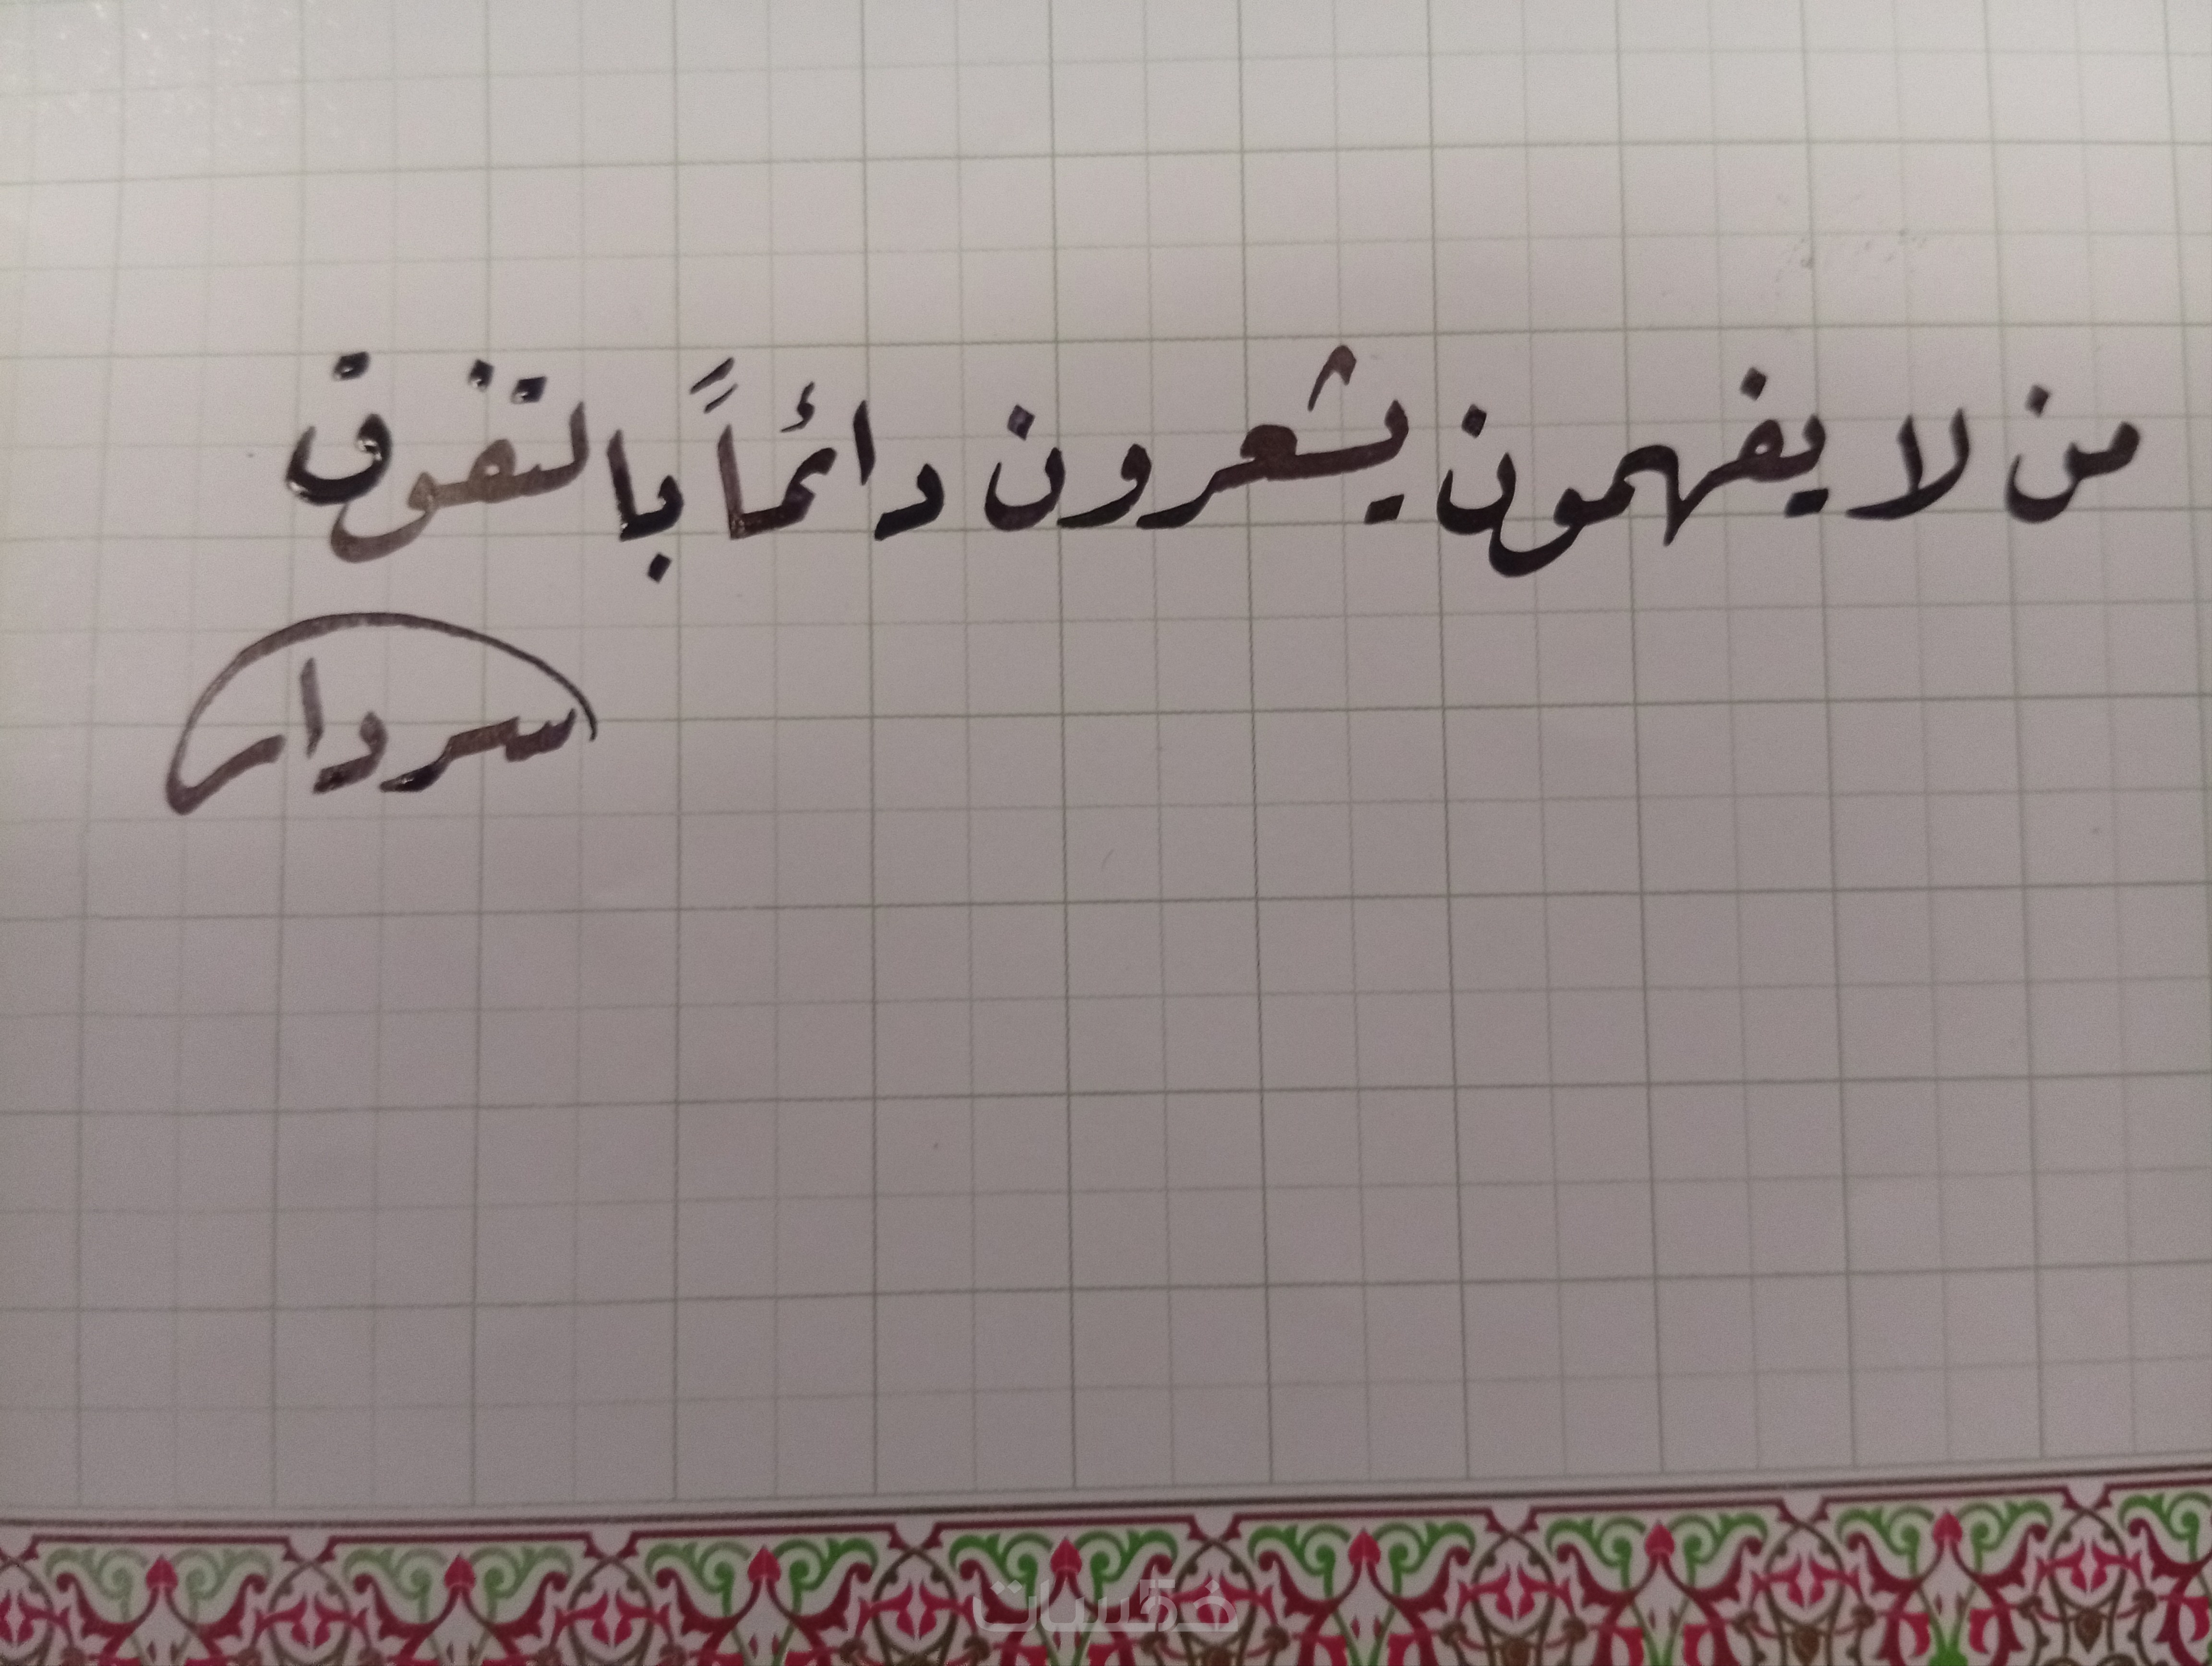 من لا يفهمون يشعرون دائماً بالتفوق
سردار
خمسات